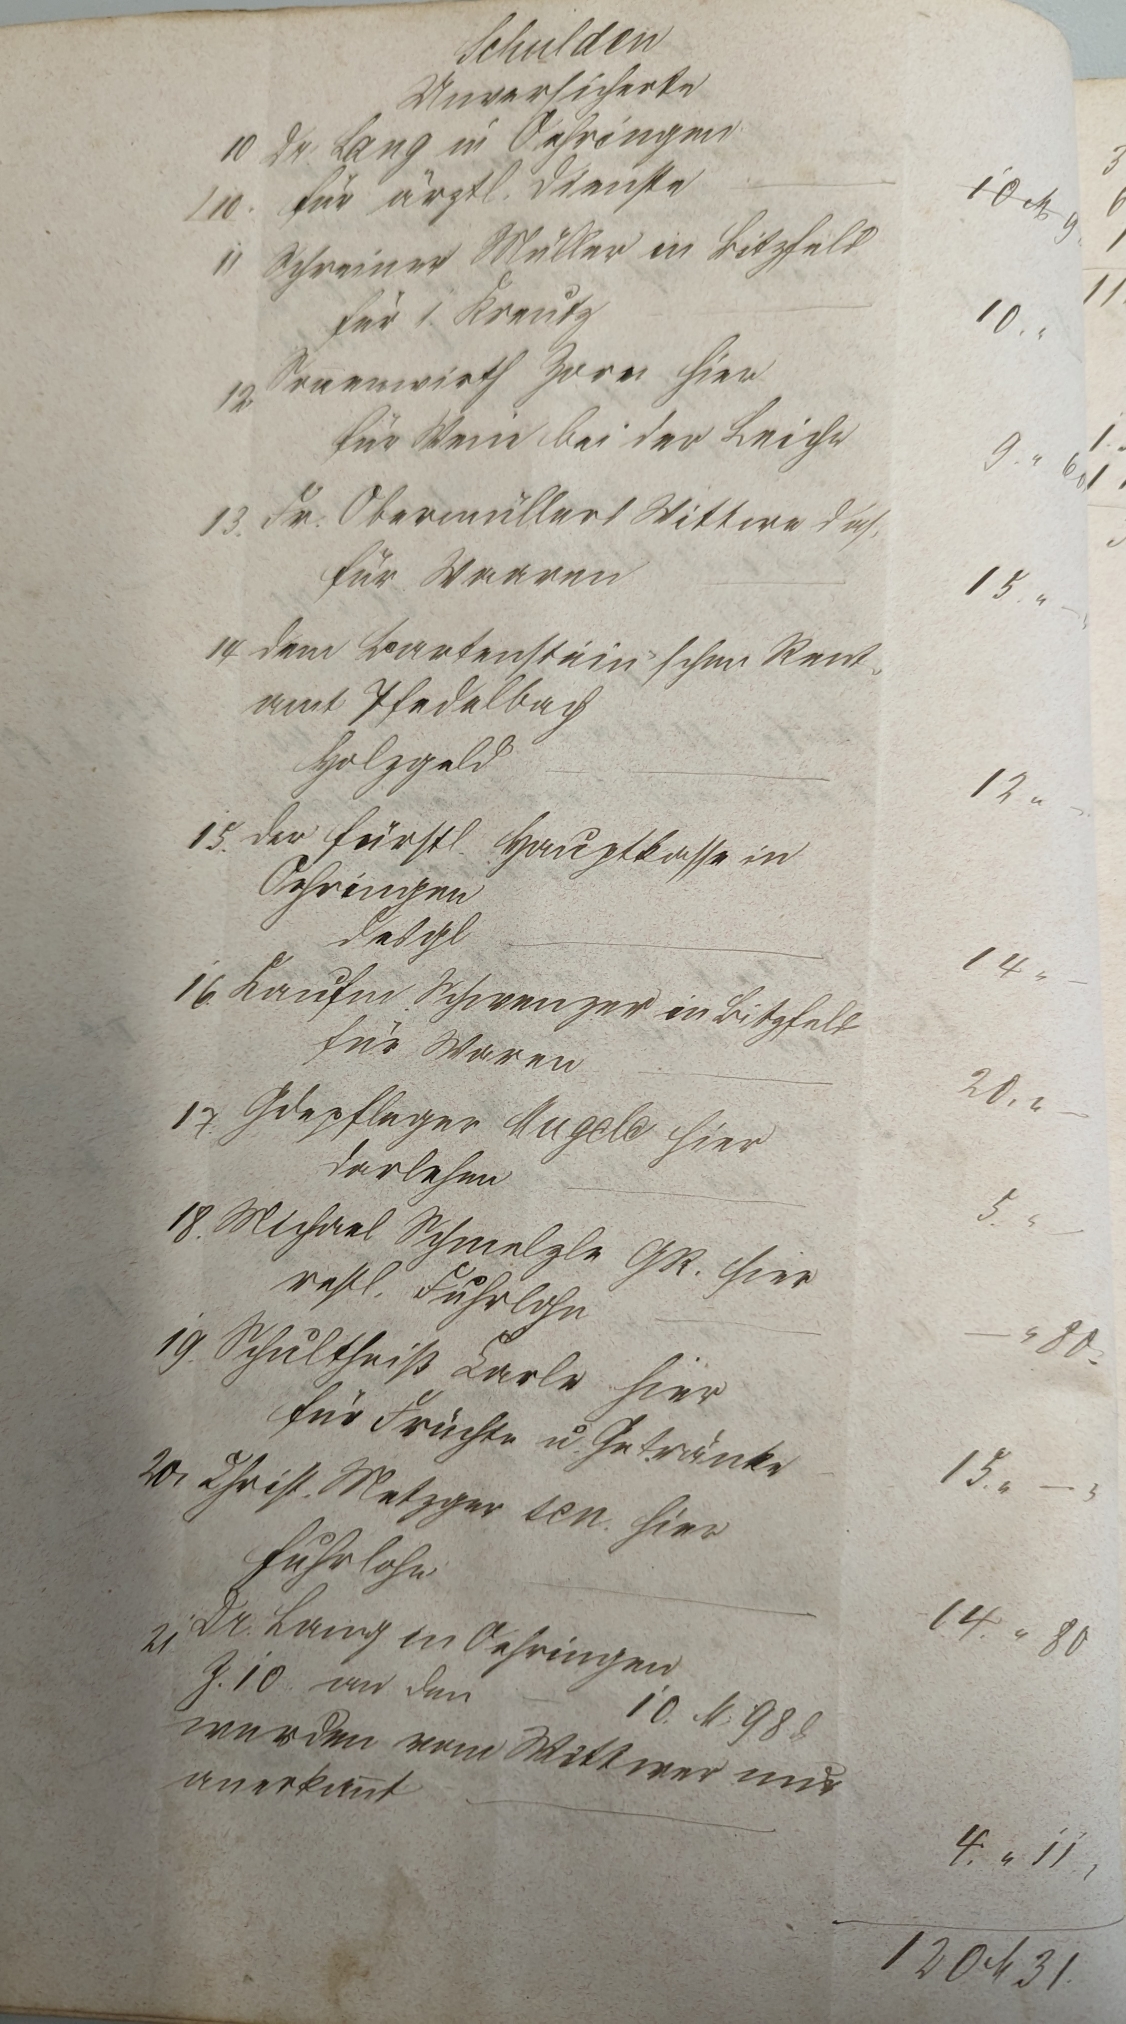 Schulden
Unversicherte
10 Dr. Lang in Oehringen
10. für ärztl. Dienste 10 M 9
11 Schreiner Müller in Bitzfeld
für 1 Kreutz 10. "
12. Sonnenwirth Zorn hier
für Wein bei der Leiche 9. " 60
13. Fr. Obermüllers Wittwe das.
für Waaren 15. " —
14 dem Bartenstein'schen Rent-
amt Pfedelbach
Holzgeld 12 " —
15. der fürstl. Hauptkasse in
Oehringen
desgl 14 " —
16. Kaufm. Schwenzer in Bitzfeld
für Waren 20. " —
17. Gdepfleger Mugele hier
Darlehen 5. " —
18. Michael Schmelzle GR. hier
restl. Fuhrlohn — " 80
19. Schultheiß Carle hier
für Früchte u. Getränke 15. " —
20. Christ. Metzger sen. hier
Fuhrlohn 14. " 80
21 Dr. Lang in Oehringen
Z. 10 an den 10. M. 98 d
werden vom Wittwer nur
anerkannt 4. " 11
120 M 31.